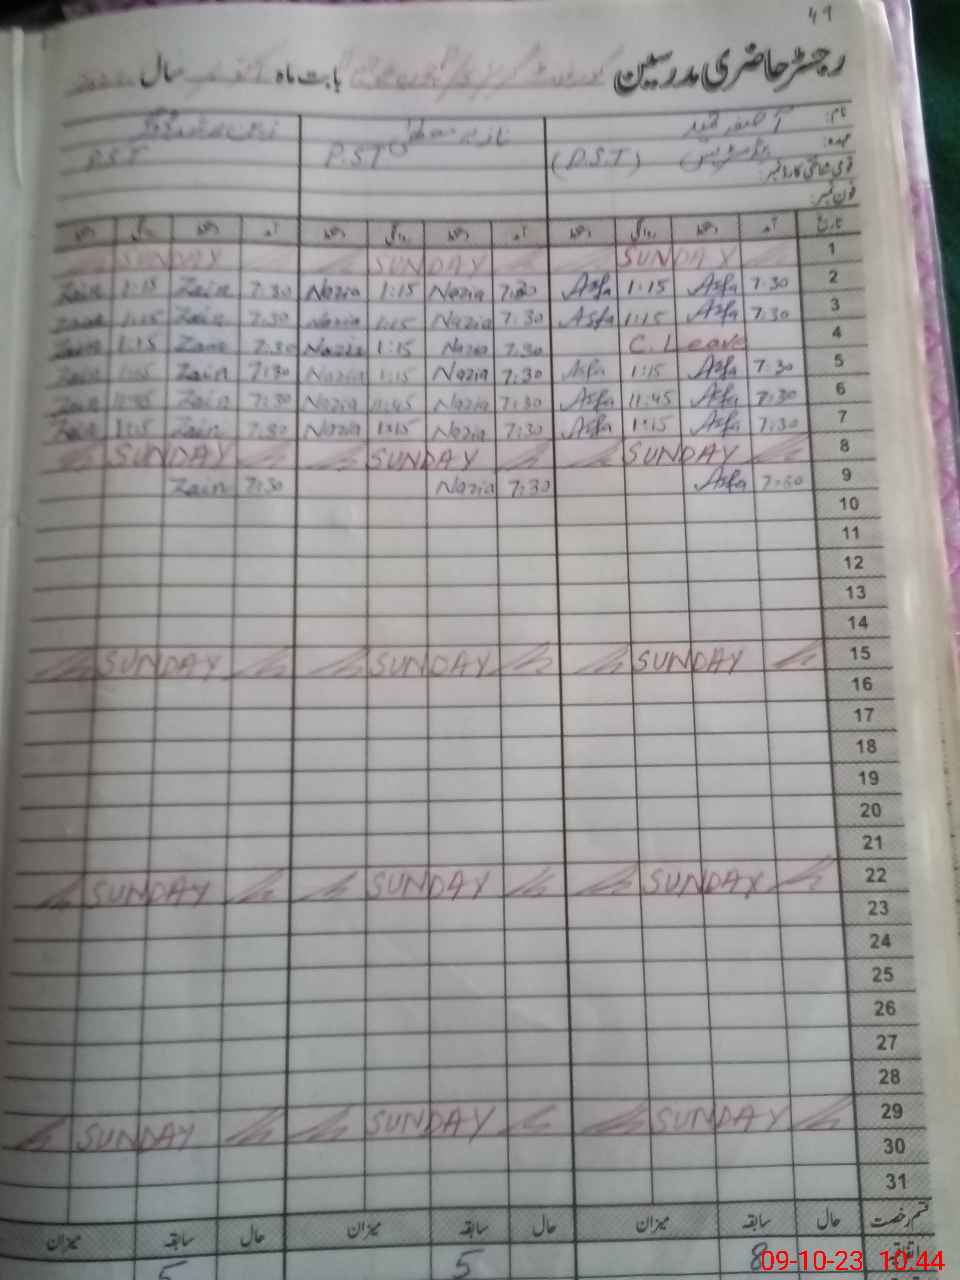 49
رجسٹر حاضری مدرسین بابت ماہ سال
نام:
عہدہ: (P.S.T) P.S.T P.S.T
قومی شناختی کارڈ نمبر:
فون نمبر:
تاریخ آمد دستخط روانگی دستخط آمد دستخط روانگی دستخط آمد دستخط روانگی دستخط
SUNDAY SUNDAY SUNDAY 1
Zain 1:15 Zain 7:30 Nazia 1:15 Nazia 7:30 Asfa 1:15 Asfa 7:30 2
1:15 Zain 7:30 Nazia 1:15 Nazia 7:30 Asfa 1:15 Asfa 7:30 3
Zain 1:15 Zain 7:30 Nazia 1:15 Nazia 7:30 C. Leave 4
Zain 1:15 Zain 7:30 Nazia 1:15 Nazia 7:30 Asfa 1:15 Asfa 7:30 5
Zain 11:45 Zain 7:30 Nazia 11:45 Nazia 7:30 Asfa 11:45 Asfa 7:30 6
Zain 1:15 Zain 7:30 Nazia 1:15 Nazia 7:30 Asfa 1:15 Asfa 7:30 7
SUNDAY SUNDAY SUNDAY 8
Zain 7:30 Nazia 7:30 Asfa 7:30 9
10
11
12
13
14
SUNDAY SUNDAY SUNDAY 15
16
17
18
19
20
21
SUNDAY SUNDAY SUNDAY 22
23
24
25
26
27
28
SUNDAY SUNDAY SUNDAY 29
30
31
قسم رخصت حال سابقہ میزان حال سابقہ میزان حال سابقہ میزان
اتفاقیہ 8 5 5
09-10-23 10:44